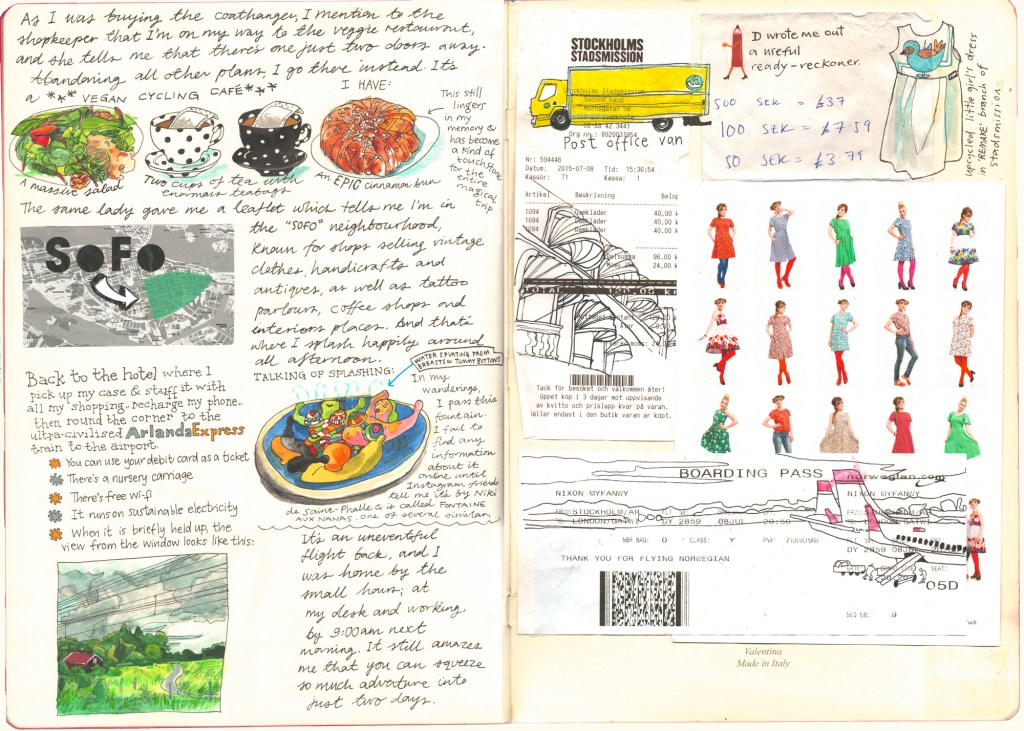 As I was buying the coathanger, I mention to the
shopkeeper that I'm on my way to the veggie restaurant,
and she tells me that there's one just two doors away.
Abandoning all other plans, I go there instead. It's
a *** VEGAN CYCLING CAFÉ ***
I HAVE:
This still
lingers
in my
memory &
has become
a kind of
touchstone
for the
entire
magical
trip
A massive salad
Two cups of tea with
enormous teabags
An EPIC cinnamon bun
The same lady gave me a leaflet which tells me I'm in
the "SOFO" neighbourhood,
known for shops selling vintage
clothes, handicrafts and
antiques, as well as tattoo
parlours, coffee shops and
interiors places. And that's
where I splash happily around
all afternoon.
SoFo
TALKING OF SPLASHING:
WATER SPURTING FROM
BREASTS OR TUMMY BUTTONS
In my
wanderings,
I pass this
fountain.
I fail to
find any
information
about it
online until
Instagram friends
tell me it's by Niki
de Saint-Phalle & is called FONTAINE
AUX NANAS. One of several similar.
Back to the hotel where I
pick up my case & stuff it with
all my shopping, recharge my phone..
then round the corner to the
ultra-civilised ArlandaExpress
train to the airport.
You can use your debit card as a ticket
There's a nursery carriage
There's free wi-fi
It runs on sustainable electricity
When it is briefly held up, the
view from the window looks like this:
It's an uneventful
flight back, and I
was home by the
small hours; at
my desk and working
by 9:00am next
morning. It still amazes
me that you can squeeze
so much adventure into
just two days.
STOCKHOLMS
STADSMISSION
Stockholms Stadsmission
Second hand
Hornsgatan 58
08-68 42 3441
Org nr.: 8020031954
Post office van
Nr: 594446
Datum: 2015-07-08 Tid: 15:36:54
Kassör: 71 Kassa: 1
Artikel Beskrivning Belop
1094 Damkläder 40,00 k
1094 Damkläder 40,00 k
1094 Damkläder 40,00 k
96,00 k
24,00 k
Tack för besöket och välkommen åter!
Öppet köp i 3 dagar mot uppvisande
av kvitto och prislapp kvar på varan.
Gäller endast i den butik varan är köpt.
D wrote me out
a useful
ready-reckoner.
500 SEK = £37
100 SEK = £7.59
50 SEK = £3.79
upcycled little girl's dress
in "REMAKE" branch of
Stadsmission
BOARDING PASS
norwegian.com
NIXON MYFANWY
NIXON MYFANWY
STOCKHOLM/AR
LONDON/GATWI DY 2859 08JUL 20:50
LONDON/GATWI
DY 2859 08JUL
NBR BAG: 0 CLASS: Y
THANK YOU FOR FLYING NORWEGIAN
SEAT:
05D
SEQ NB: 9
Valentina
Made in Italy